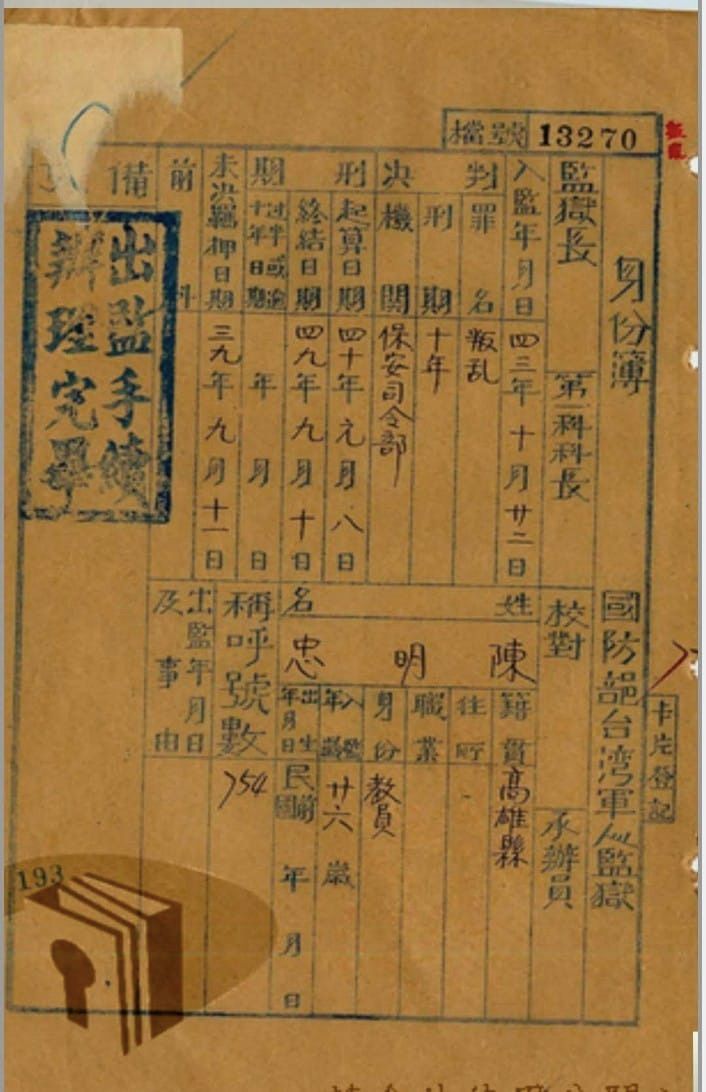 檔號 13270
叛亂
身份簿 國防部台湾軍人監獄
卡片登記
監獄長 第一科科長 校對 承辦員
入監年月日 四三年十月廿二日
判決
罪名 叛乱
刑期 十年
機關 保安司令部
刑期
起算日期 四十年元月八日
終結日期 四九年九月十日
过半或逾十年日期 年 月 日
未決羈押日期 三九年九月十一日
前科
備
出監手續
辦理完畢
姓名 陳明忠
籍貫 高雄縣
住所
職業
身份 教員
入監年齡 廿六歲
出生年月日 民國前 年 月 日
稱呼號數 754
出監年月日及事由
193